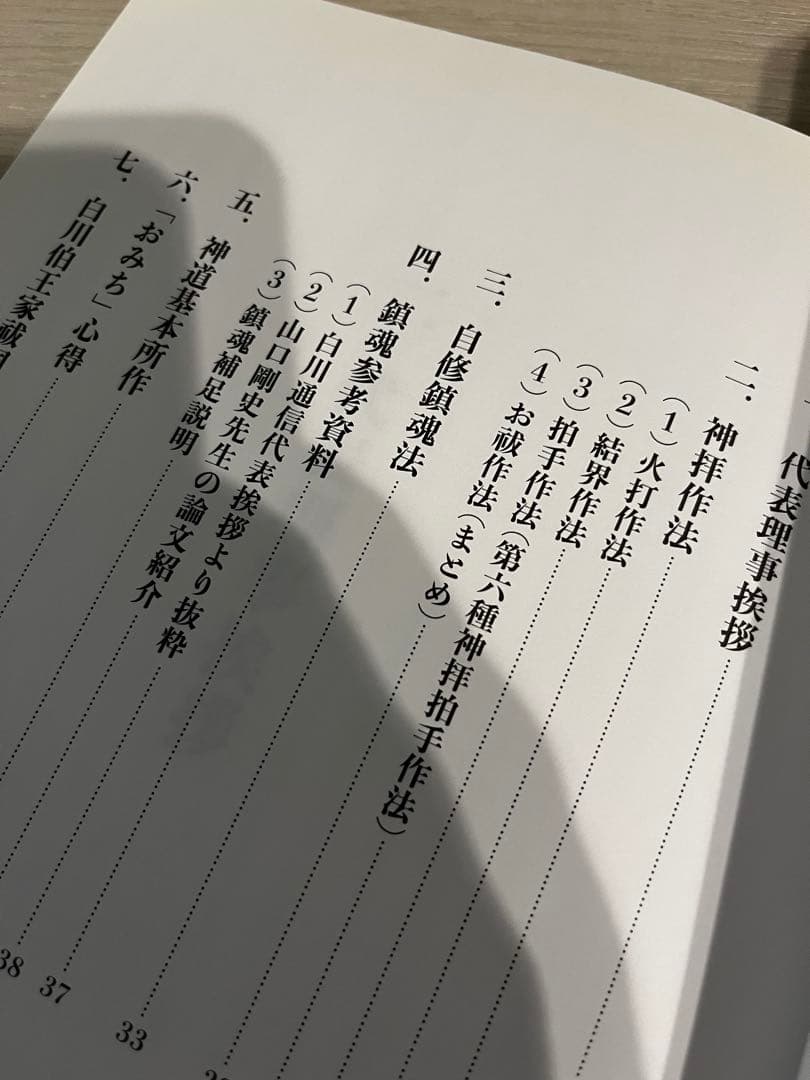 代表理事挨拶
二．神拝作法
（1）火打作法
（2）結界作法
（3）拍手作法
（4）お祓作法（第六種神拝拍手作法）
三．自修鎮魂法（まとめ）
四．鎮魂参考資料
（1）白川通信代表挨拶より抜粋
（2）山口剛史先生の論文紹介
（3）鎮魂補足説明
五．神道基本所作
六．「おみち」心得
七．白川伯王家祓
33
37
38